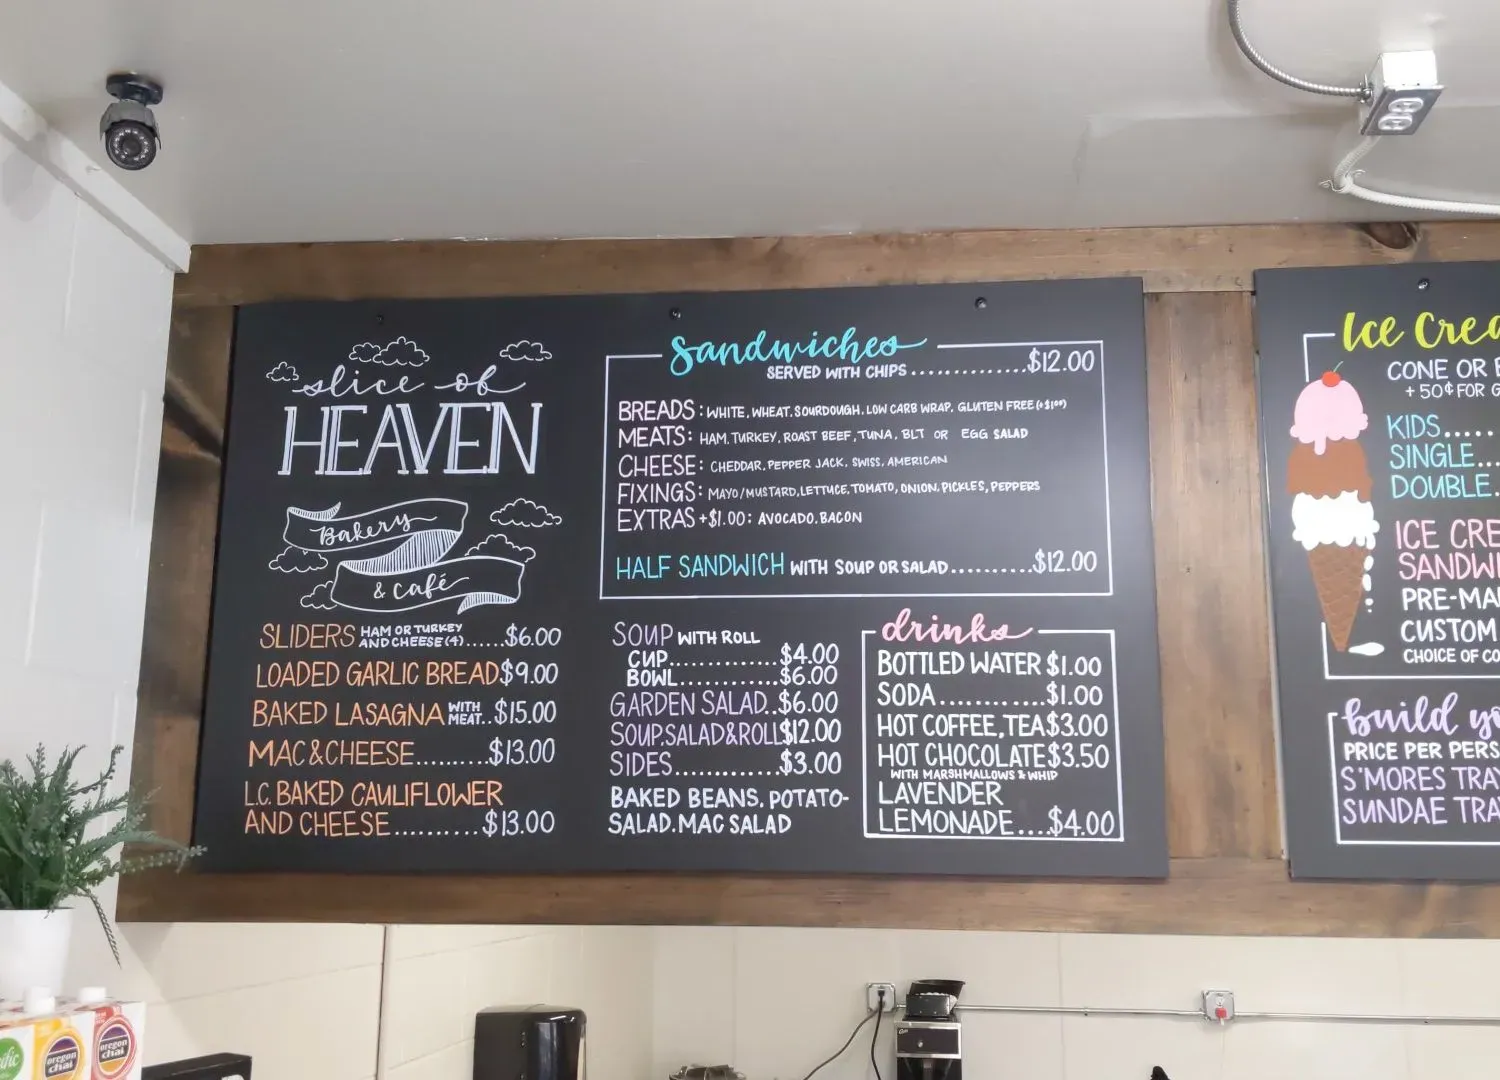 slice of
HEAVEN
Bakery
& café
SLIDERS HAM OR TURKEY AND CHEESE (4)......$6.00
LOADED GARLIC BREAD $9.00
BAKED LASAGNA WITH MEAT..$15.00
MAC & CHEESE..........$13.00
L.C. BAKED CAULIFLOWER
AND CHEESE..........$13.00
Sandwiches
SERVED WITH CHIPS..............$12.00
BREADS: WHITE, WHEAT, SOURDOUGH, LOW CARB WRAP, GLUTEN FREE (+$1⁰⁰)
MEATS: HAM, TURKEY, ROAST BEEF, TUNA, BLT OR EGG SALAD
CHEESE: CHEDDAR, PEPPER JACK, SWISS, AMERICAN
FIXINGS: MAYO/MUSTARD, LETTUCE, TOMATO, ONION, PICKLES, PEPPERS
EXTRAS +$1.00: AVOCADO, BACON
HALF SANDWICH WITH SOUP OR SALAD..........$12.00
SOUP WITH ROLL
CUP..............$4.00
BOWL..............$6.00
GARDEN SALAD..$6.00
SOUP, SALAD & ROLL $12.00
SIDES..............$3.00
BAKED BEANS, POTATO-
SALAD, MAC SALAD
drinks
BOTTLED WATER $1.00
SODA..............$1.00
HOT COFFEE, TEA $3.00
HOT CHOCOLATE $3.50
WITH MARSHMALLOWS & WHIP
LAVENDER
LEMONADE....$4.00
Ice Crea
CONE OR
+ 50¢ FOR G
KIDS.....
SINGLE...
DOUBLE.
ICE CRE
SANDWI
PRE-MA
CUSTOM
CHOICE OF CO
Build yo
PRICE PER PERS
S'MORES TRA
SUNDAE TRA
oregon
chai
oregon
chai